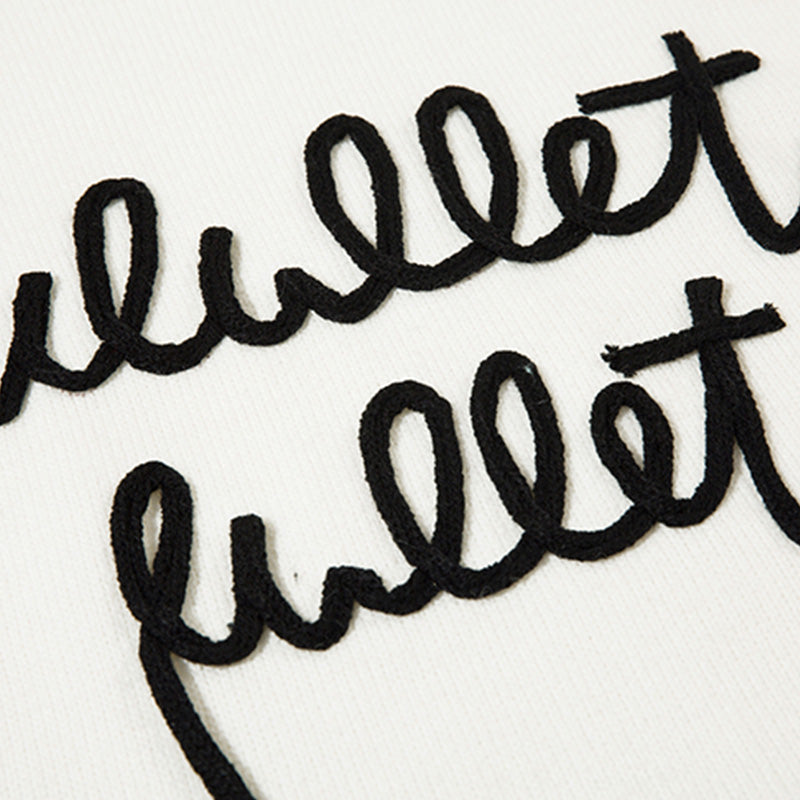 lullet
lullet